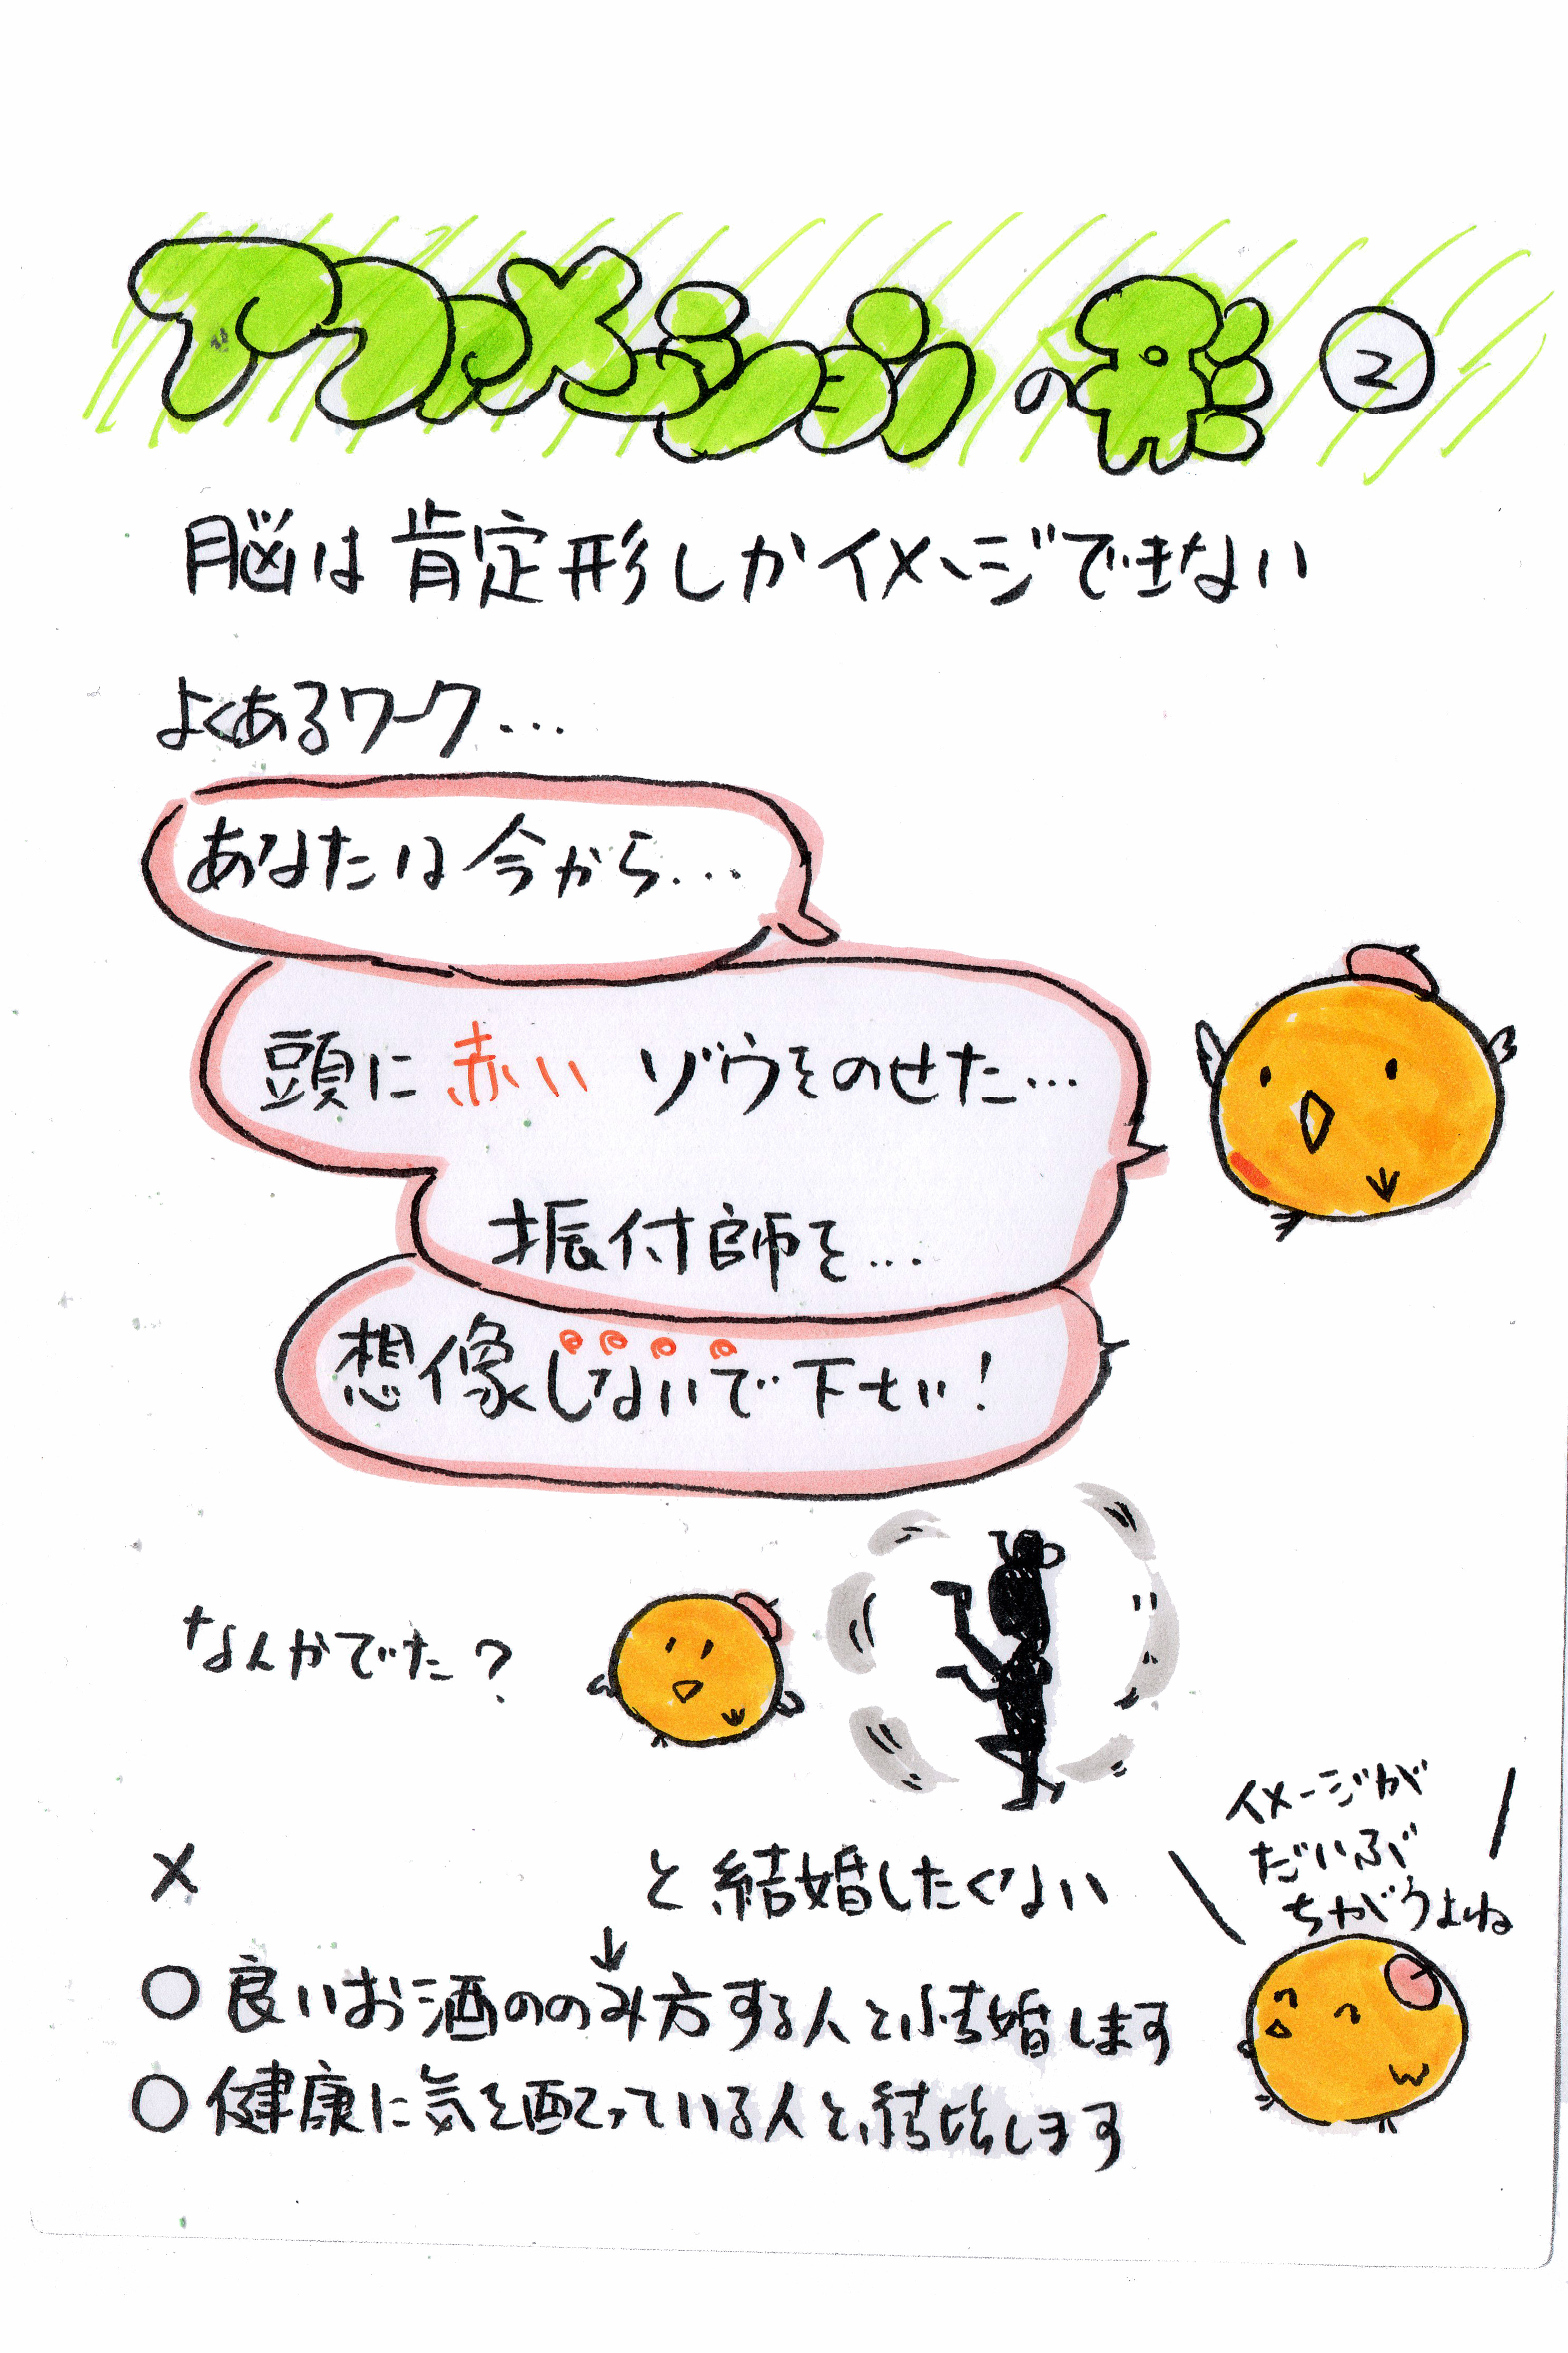 アファメーションの形②
脳は肯定形しかイメージできない
よくあるワーク...
あなたは今から...
頭に赤いゾウをのせた...
振付師を...
想像しないで下さい!
なんかでた?
イメージが
だいぶ
ちがうよね
× と結婚したくない
↓
○ 良いお酒ののみ方する人と結婚します
○ 健康に気を配っている人と結婚します